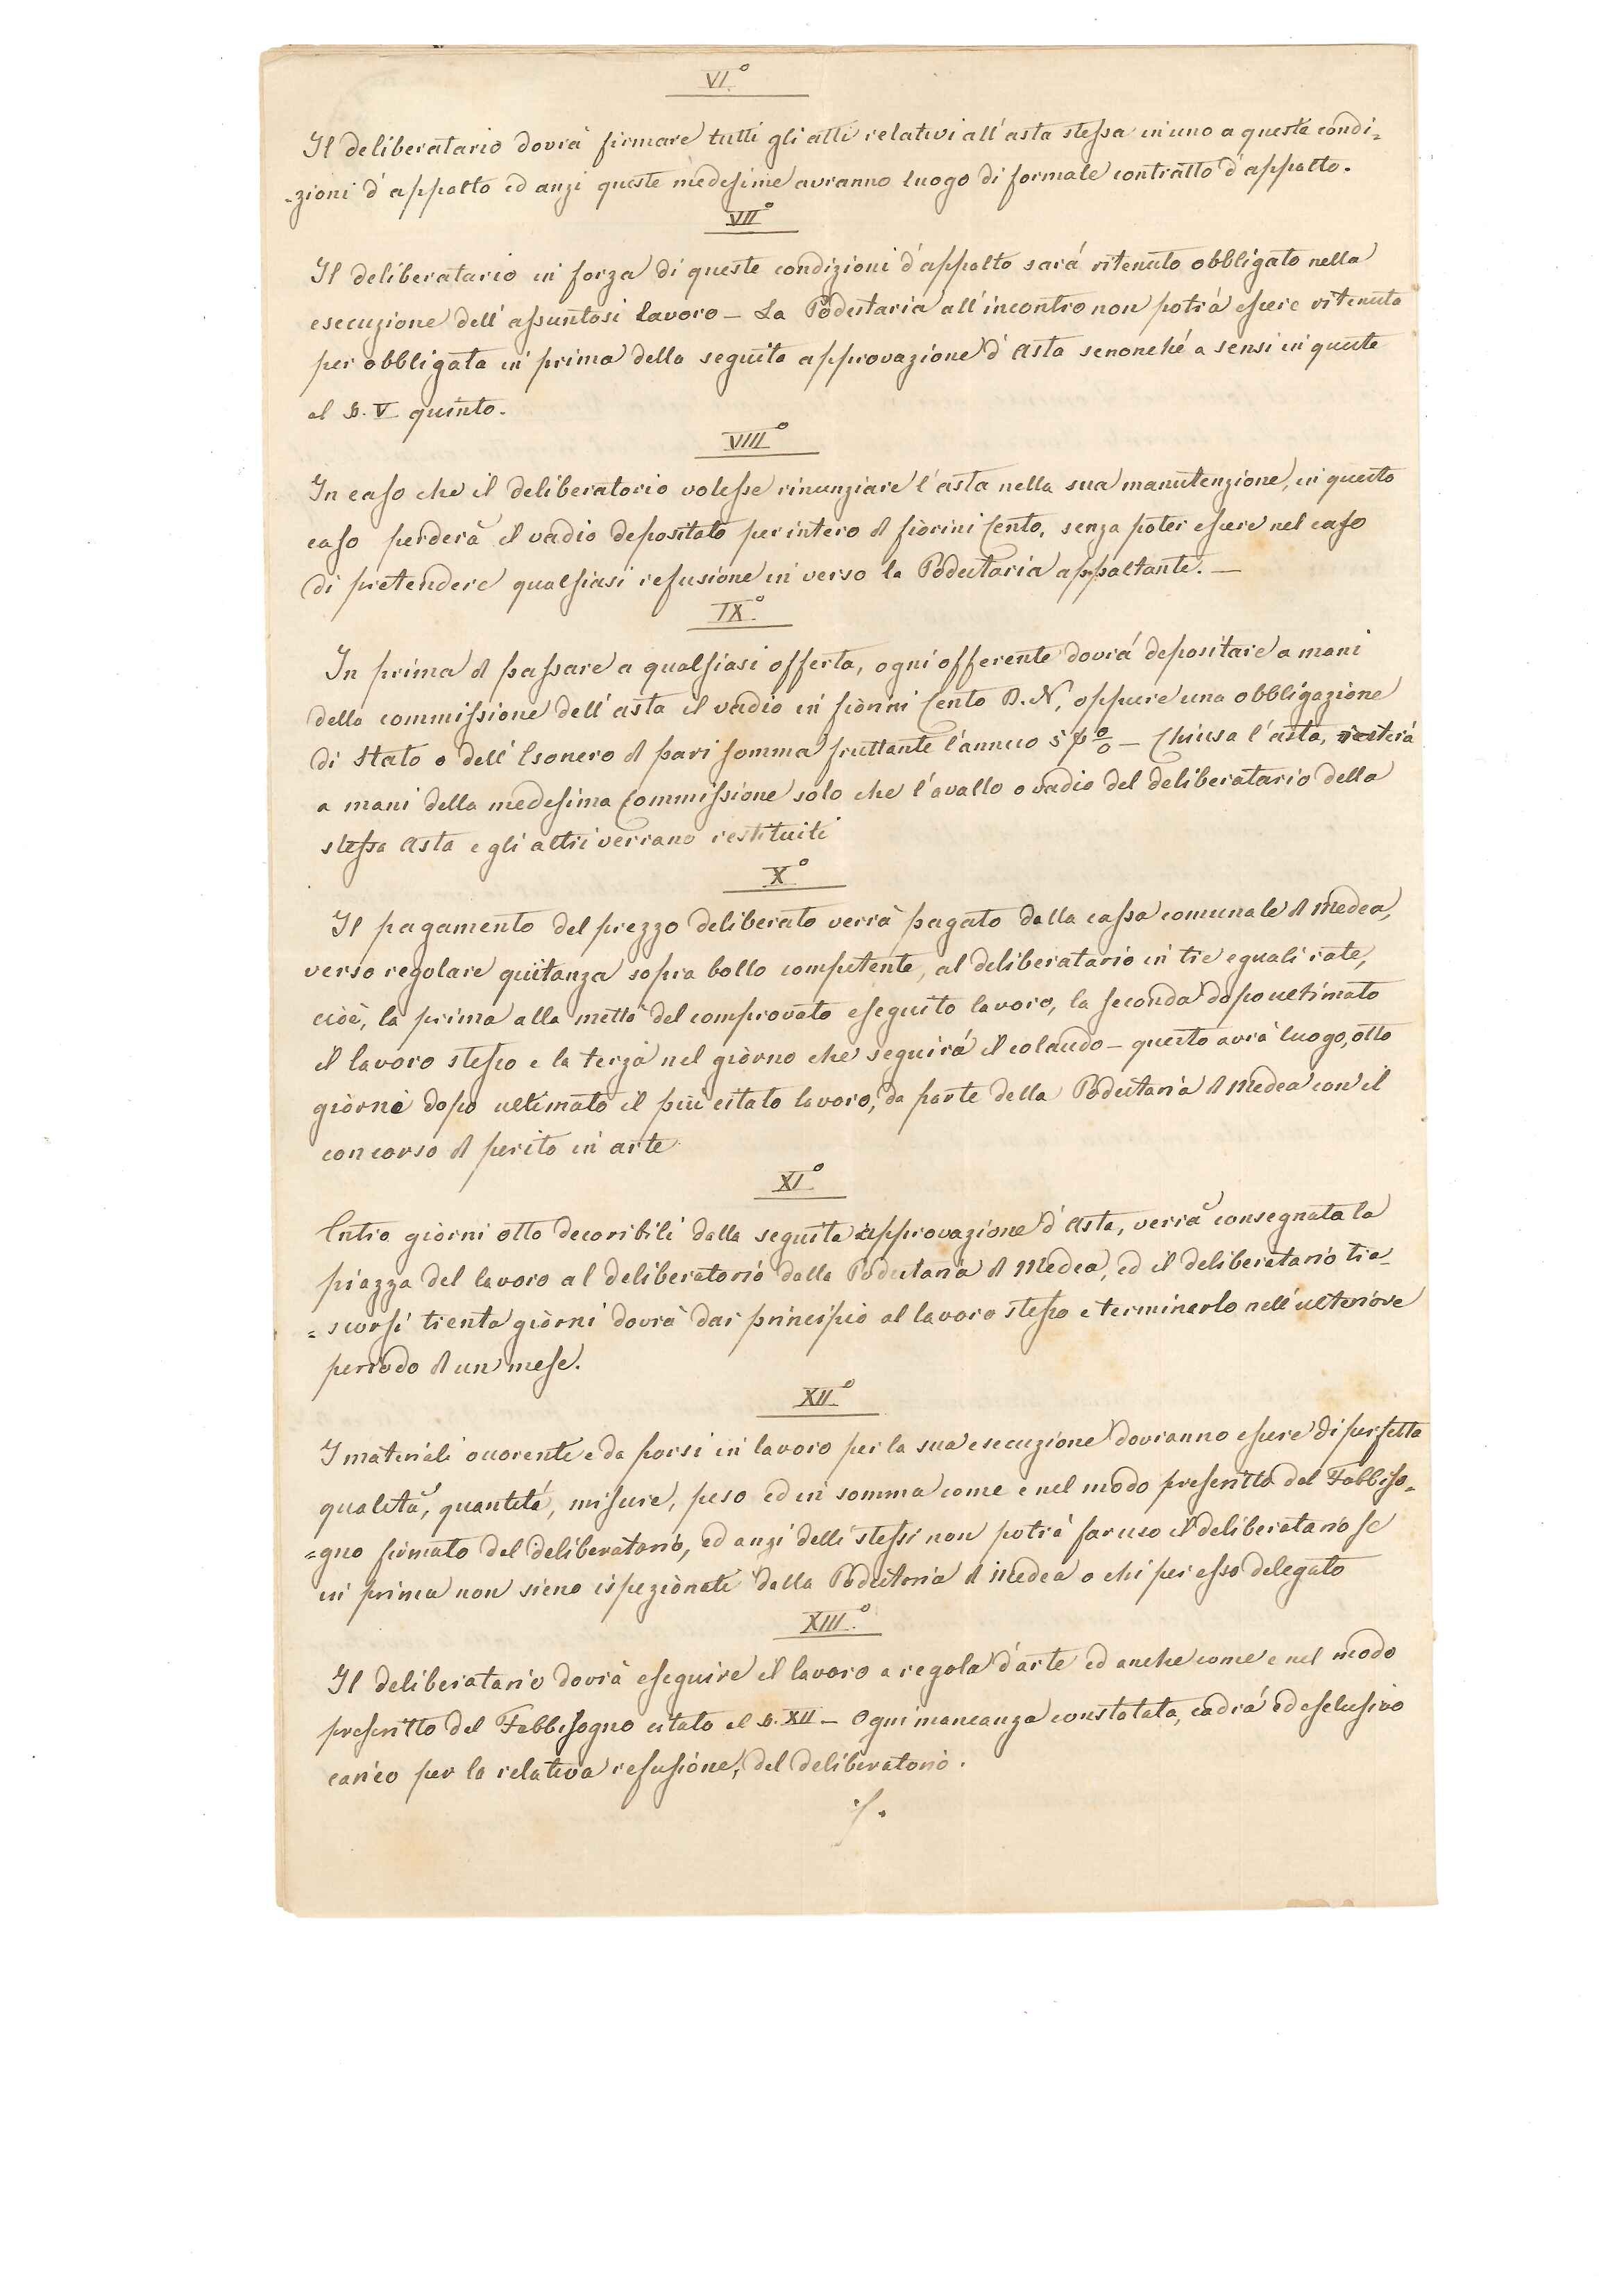 VI.°
Il deliberatario dovrà firmare tutti gli atti relativi all'asta stessa in uno a queste condi=
-zioni d'appalto ed anzi queste medesime avranno luogo di formale contratto d'appalto.
VII°
Il deliberatario in forza di queste condizioni d'appalto sará ritenuto obbligato nella
esecuzione dell'assuntosi lavoro – La Podestaria all'incontro non potrà essere ritenuta
per obbligata in prima della seguita approvazione d'Asta senonché a sensi in queste
al §. V quinto.
VIII°
In caso che il deliberatorio volesse rinunziare l'asta nella sua manutenzione, in questo
caso perderà il vadio depositato per intero di fiorini Cento, senza poter essere nel caso
di pretendere qualsiasi refusione in verso la Podestaria appaltante. —
IX.°
In prima di passare a qualsiasi offerta, ogni offerente dovrá depositare a mani
della commissione dell'asta il vadio in fiorini Cento B.N, oppure una obbligazione
di Stato o dell'Esonero di pari somma fruttante l'annuo 5 p% – Chiusa l'asta, resterá
a mani della medesima Commissione solo che l'avallo o vadio del deliberatario della
stessa Asta e gli altri verrano restituiti
X.°
Il pagamento del prezzo deliberato verrà pagato dalla cassa comunale di Medea,
verso regolare quitanza sopra bollo competente, al deliberatario in tre eguali rate,
cioè, la prima alla mettà del comprovato eseguito lavoro, la seconda dopo ultimato
il lavoro stesso e la terza nel giorno che seguirá il colaudo – questo avrà luogo, otto
giorni dopo ultimato il più citato lavoro, da parte della Podestaria di Medea con il
concorso di perito in arte
XI.°
Entro giorni otto decoribili dalla seguita approvazione d'Asta, verrà consegnata la
piazza del lavoro al deliberatorio dalla Podestaria di Medea, ed il deliberatario tra-
=scorsi trenta giorni dovrà dar principio al lavoro stesso e terminarlo nell'ulteriore
periodo di un mese.
XII.°
I materiali ocorente e da porsi in lavoro per la sua esecuzione dovranno essere di perfetta
qualità, quantità, misure, peso ed in somma come e nel modo prescritto dal Fabbiso=
=gno firmato del deliberatario, ed anzi delli stessi non potrà far uso il deliberatario se
in prima non sieno ispezionati dalla Podestaria di Medea o chi per esso delegato
XIII.°
Il deliberatario dovrà eseguire il lavoro a regola d'arte ed anche come e nel modo
prescritto del Fabbisogno citato al §. XII – Ogni mancanza constatata, cadrá ad esclusivo
carico per la relativa refusione, del deliberatorio.
./.